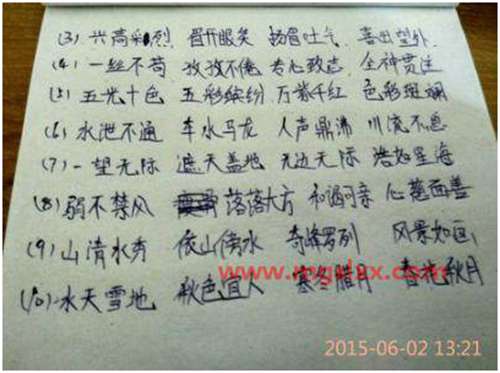 (3) 兴高彩烈 眉开眼笑 扬眉吐气 喜出望外
(4) 一丝不苟 孜孜不倦 专心致志 全神贯注
(5) 五光十色 五彩缤纷 万紫千红 色彩斑斓
(6) 水泄不通 车水马龙 人声鼎沸 川流不息
(7) 一望无际 遮天盖地 无边无际 浩如星海
(8) 弱不禁风 落落大方 和谒可亲 心慈面善
(9) 山清水秀 依山傍水 奇峰罗列 风景如画
www.mgxlxx.com
(10) 水天雪地 秋色宜人 寒冬腊月 春花秋月
2015-06-02 13:21